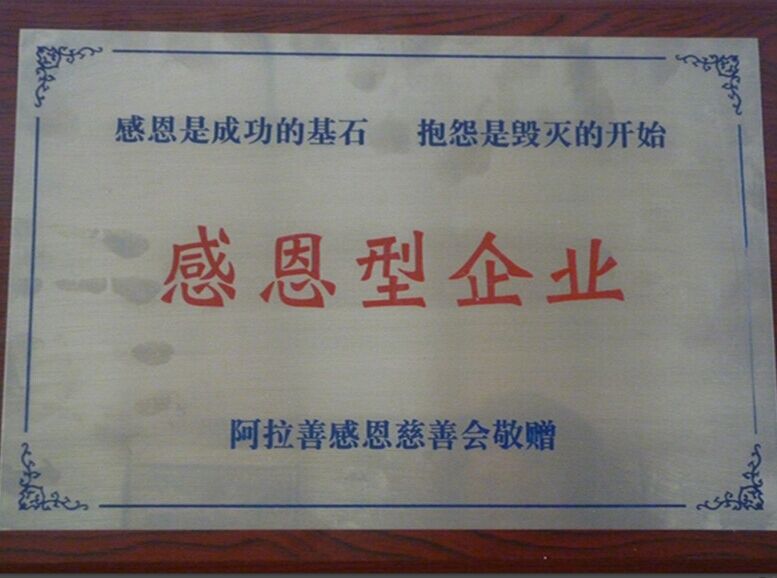 感恩是成功的基石 抱怨是毁灭的开始
感恩型企业
阿拉善感恩慈善会敬赠